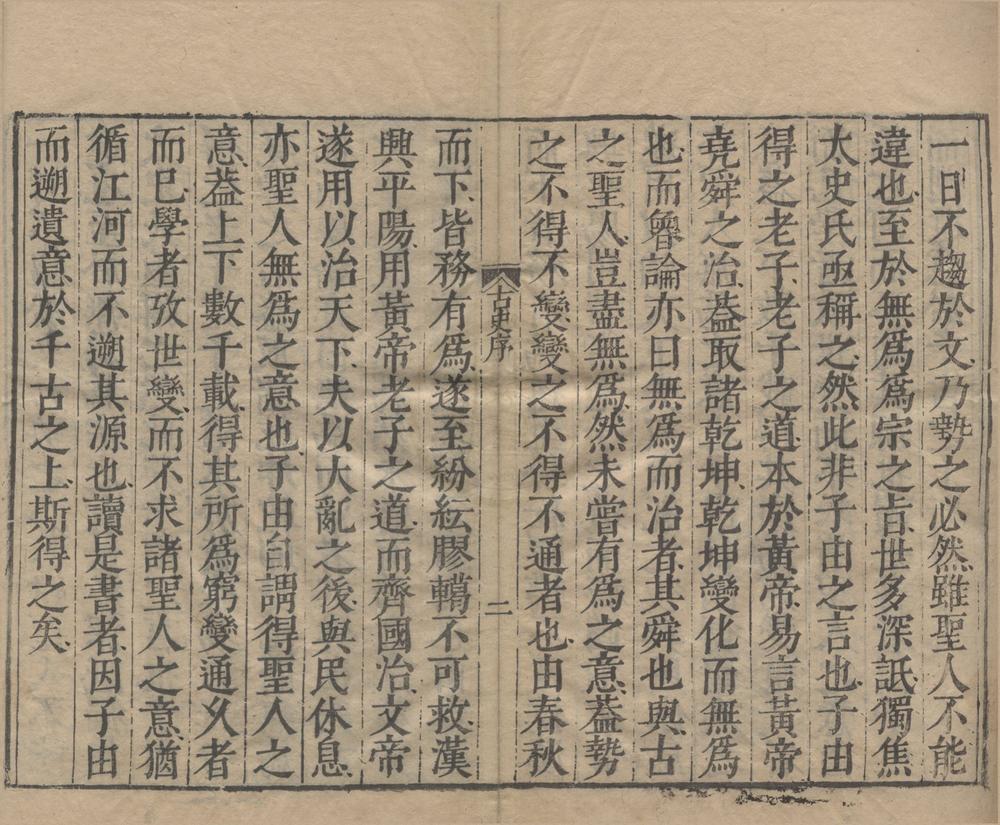 一日不趨於文乃勢之必然雖聖人不能
違也至於無爲爲宗之旨世多深詆獨焦
太史氏亟稱之然此非子由之言也子由
得之老子老子之道本於黃帝易言黃帝
堯舜之治葢取諸乾坤乾坤變化而無爲
也而魯論亦曰無爲而治者其舜也與古
之聖人豈盡無爲然未嘗有爲之意葢勢
之不得不變變之不得不通者也由春秋
古史序
二
而下皆務有爲遂至紛紜膠轕不可救漢
興平陽用黃帝老子之道而齊國治文帝
遂用以治天下夫以大亂之後與民休息
亦聖人無爲之意也子由自謂得聖人之
意葢上下數千載得其所爲窮變通久者
而巳學者攷世變而不求諸聖人之意猶
循江河而不遡其源也讀是書者因子由
而遡遺意於千古之上斯得之矣